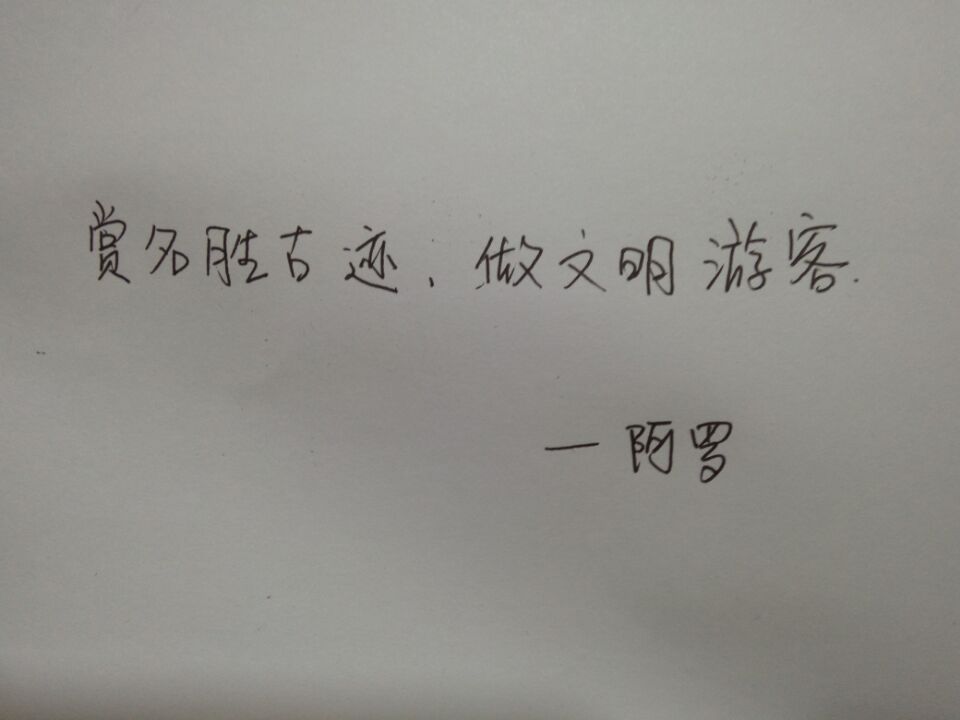 赏名胜古迹，做文明游客.
—阿罗